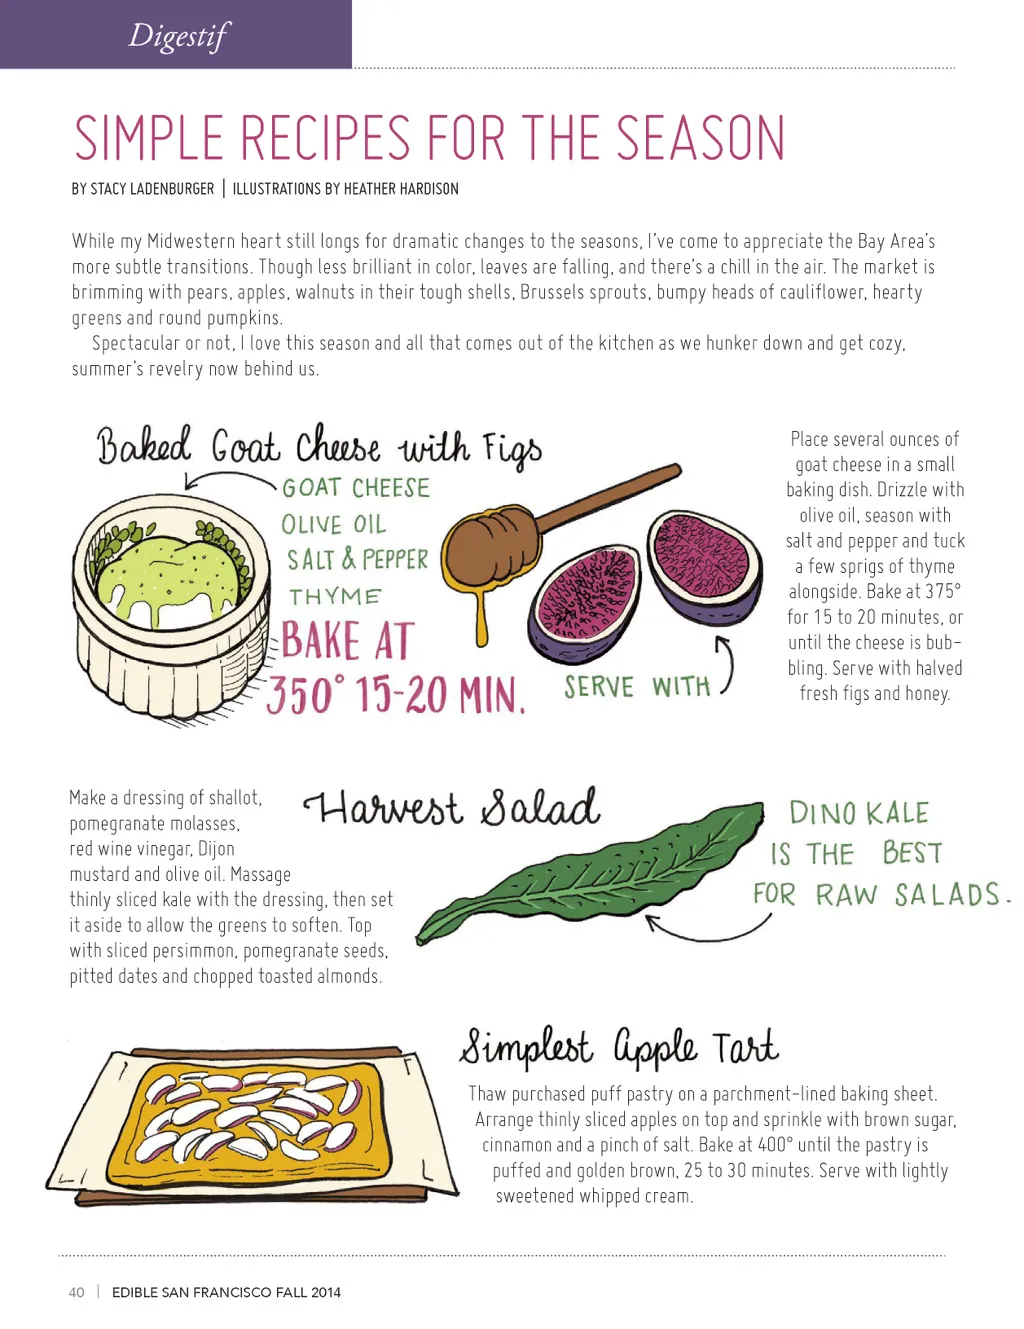 Digestif
SIMPLE RECIPES FOR THE SEASON
BY STACY LADENBURGER | ILLUSTRATIONS BY HEATHER HARDISON
While my Midwestern heart still longs for dramatic changes to the seasons, I've come to appreciate the Bay Area's
more subtle transitions. Though less brilliant in color, leaves are falling, and there's a chill in the air. The market is
brimming with pears, apples, walnuts in their tough shells, Brussels sprouts, bumpy heads of cauliflower, hearty
greens and round pumpkins.
Spectacular or not, I love this season and all that comes out of the kitchen as we hunker down and get cozy,
summer's revelry now behind us.
Baked Goat Cheese with Figs
GOAT CHEESE
OLIVE OIL
SALT & PEPPER
THYME
BAKE AT
350° 15-20 MIN.
SERVE WITH
Place several ounces of
goat cheese in a small
baking dish. Drizzle with
olive oil, season with
salt and pepper and tuck
a few sprigs of thyme
alongside. Bake at 375°
for 15 to 20 minutes, or
until the cheese is bub-
bling. Serve with halved
fresh figs and honey.
Harvest Salad
Make a dressing of shallot,
pomegranate molasses,
red wine vinegar, Dijon
mustard and olive oil. Massage
thinly sliced kale with the dressing, then set
it aside to allow the greens to soften. Top
with sliced persimmon, pomegranate seeds,
pitted dates and chopped toasted almonds.
DINO KALE
IS THE BEST
FOR RAW SALADS.
Simplest Apple Tart
Thaw purchased puff pastry on a parchment-lined baking sheet.
Arrange thinly sliced apples on top and sprinkle with brown sugar,
cinnamon and a pinch of salt. Bake at 400° until the pastry is
puffed and golden brown, 25 to 30 minutes. Serve with lightly
sweetened whipped cream.
40 | EDIBLE SAN FRANCISCO FALL 2014